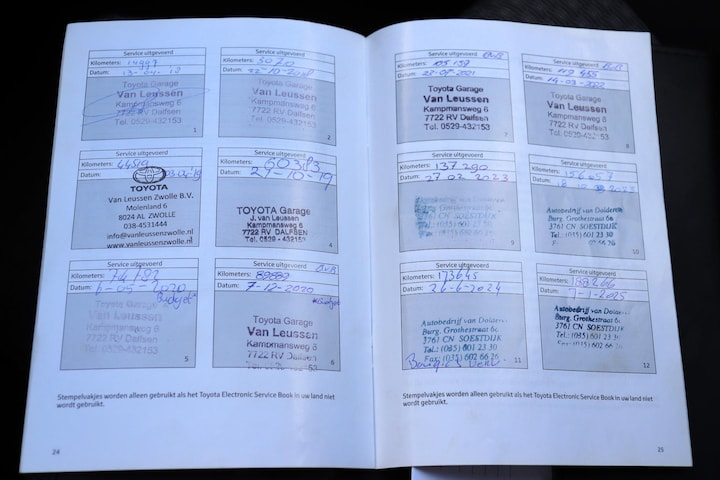 Service uitgevoerd
Kilometers: 14999
Datum: 13-04-18
Toyota Garage
Van Leussen
Kampmansweg 6
7722 RV Dalfsen
Tel. 0529-432153
1
Service uitgevoerd
Kilometers:
Datum: 22-10-2018
Toyota Garage
Van Leussen
Kampmansweg 6
7722 RV Dalfsen
Tel. 0529-432153
2
Service uitgevoerd
Kilometers: 44519
Datum: 03-04-19
TOYOTA
Van Leussen Zwolle B.V.
Molenland 6
8024 AL ZWOLLE
038-4531444
info@vanleussenzwolle.nl
www.vanleussenzwolle.nl
Service uitgevoerd
Kilometers: 60383
Datum: 29-10-'19
TOYOTA Garage
J. van Leussen
Kampmansweg 6
7722 RV DALFSEN
Tel. 0529 - 432153
4
Service uitgevoerd
Kilometers: 74182
Datum: 6-05-2020
Budget
Toyota Garage
Van Leussen
Kampmansweg 6
7722 RV Dalfsen
Tel. 0529-432153
5
Service uitgevoerd
Kilometers: 89889
Datum: 7-12-2020
Budget
Toyota Garage
Van Leussen
Kampmansweg 6
7722 RV Dalfsen
Tel. 0529-432153
6
Stempelvakjes worden alleen gebruikt als het Toyota Electronic Service Book in uw land niet
wordt gebruikt.
24
Service uitgevoerd
Kilometers: 105159
Datum: -07-2021
Toyota Garage
Van Leussen
Kampmansweg 6
7722 RV Dalfsen
Tel. 0529-432153
7
Service uitgevoerd
Kilometers:
Datum:
Toyota Garage
Van Leussen
Kampmansweg 6
7722 RV Dalfsen
Tel. 0529-432153
8
Service uitgevoerd
Kilometers: 137290
Datum: 27 02 2023
9
Service uitgevoerd
Kilometers:
Datum:
Autobedrijf van Dolderen
Burg. Grothestraat 6a
3761 CN SOESTDIJK
Tel.: (035) 601 23 30
10
Service uitgevoerd
Kilometers: 173648
Datum: 26-6-2024
Autobedrijf van Dolderen
Burg. Grothestraat 6a
3761 CN SOESTDIJK
Tel.: (035) 601 23 30
Fax: (035) 602 66 26
11
Service uitgevoerd
Kilometers: 188266
Datum:
Autobedrijf van Dolderen
Burg. Grothestraat 6a
3761 CN SOESTDIJK
Tel.: (035) 601 23 30
Fax: (035) 602 66 26
12
Stempelvakjes worden alleen gebruikt als het Toyota Electronic Service Book in uw land niet
wordt gebruikt.
25